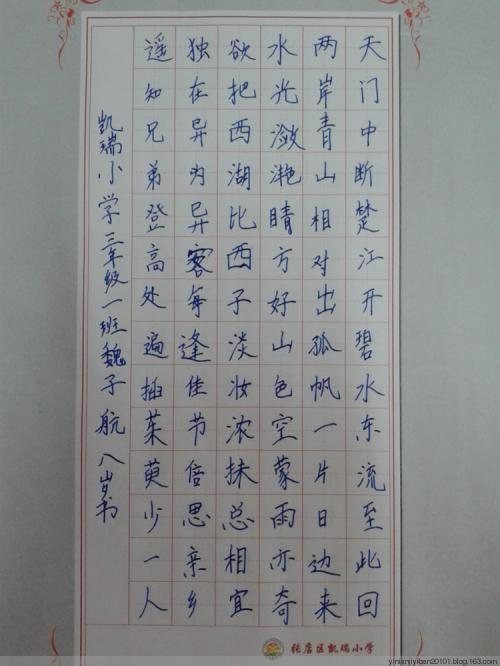 天门中断楚江开碧水东流至此回
两岸青山相对出孤帆一片日边来
水光潋滟晴方好山色空蒙雨亦奇
欲把西湖比西子淡妆浓抹总相宜
独在异为异客每逢佳节倍思亲乡
遥知兄弟登高处遍插茱萸少一人
凯瑞小学三年级一班魏子航 八岁书
张店区凯瑞小学